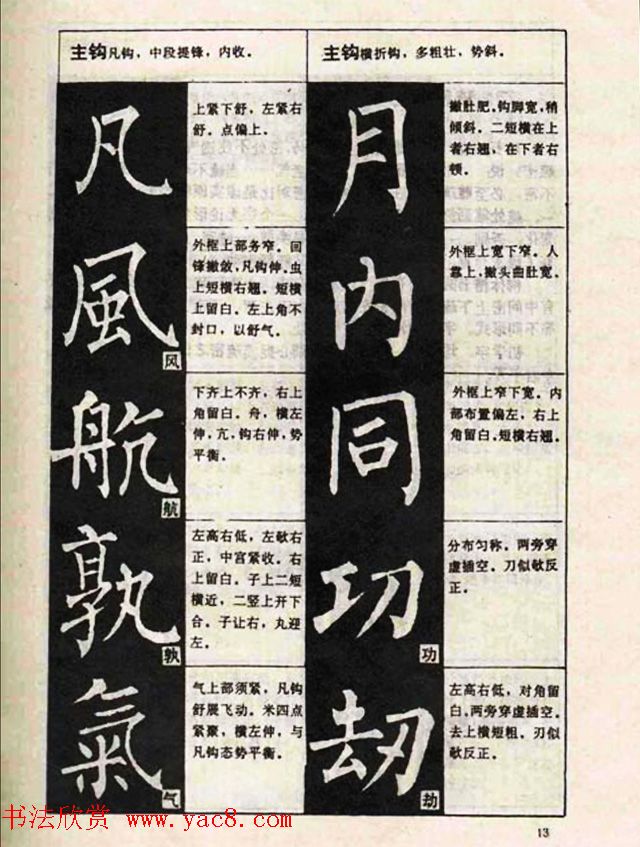 主钩凡钩，中段提锋，内收。
凡
上紧下舒，左紧右
舒。点偏上。
風
风
外框上部务窄。回
锋撇敛，凡钩伸。虫
上短横右翘。短横
上留白。左上角不
封口，以舒气。
航
航
下齐上不齐，右上
角留白。舟，横左
伸，亢，钩右伸，势
平衡。
孰
孰
左高右低，左欹右
正，中宫紧收。右
上留白。子上二短
横近，二竖上开下
合。子让右，丸迎
左。
氣
气
气上部须紧，凡钩
舒展飞动。米四点
紧聚，横左伸，与
凡钩态势平衡。
主钩横折钩，多粗壮，势斜。
月
撇肚肥。钩脚宽，稍
倾斜。二短横在上
者右翘，在下者右
顿。
内
外框上宽下窄。人
靠上，撇头曲肚宽。
同
外框上窄下宽。内
部布置偏左，右上
角留白。短横右翘。
功
功
分布匀称。两旁穿
虚插空。刀似欹反
正。
劫
劫
左高右低，对角留
白。两旁穿虚插空。
去上横短粗，刃似
欹反正。
书法欣赏 www.yac8.com
13